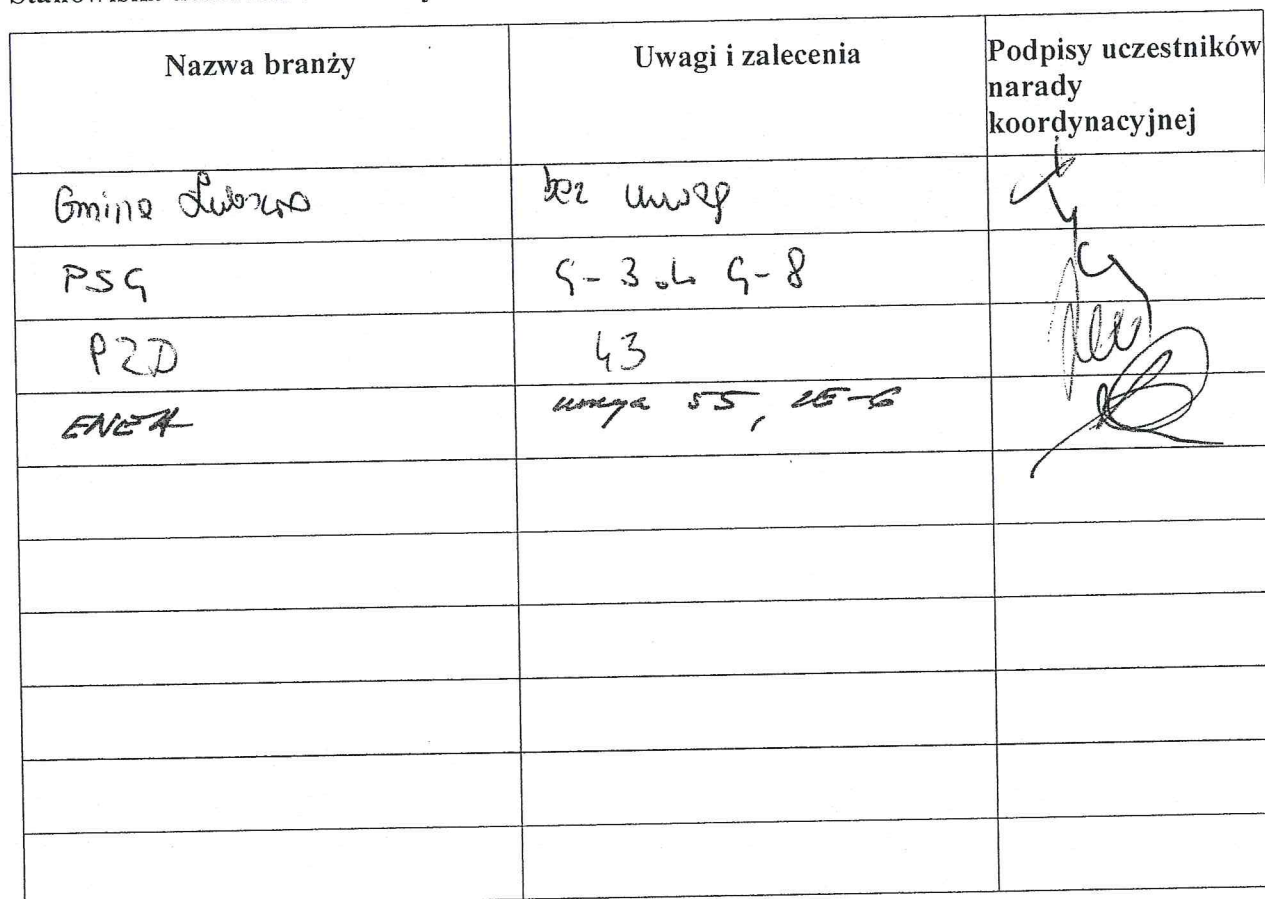 Nazwa branży
Uwagi i zalecenia
Podpisy uczestników
narady
koordynacyjnej
Gmina
bez uwag
PSG
G-3 do G-8
PZD
43
ENEA
uwaga 55,